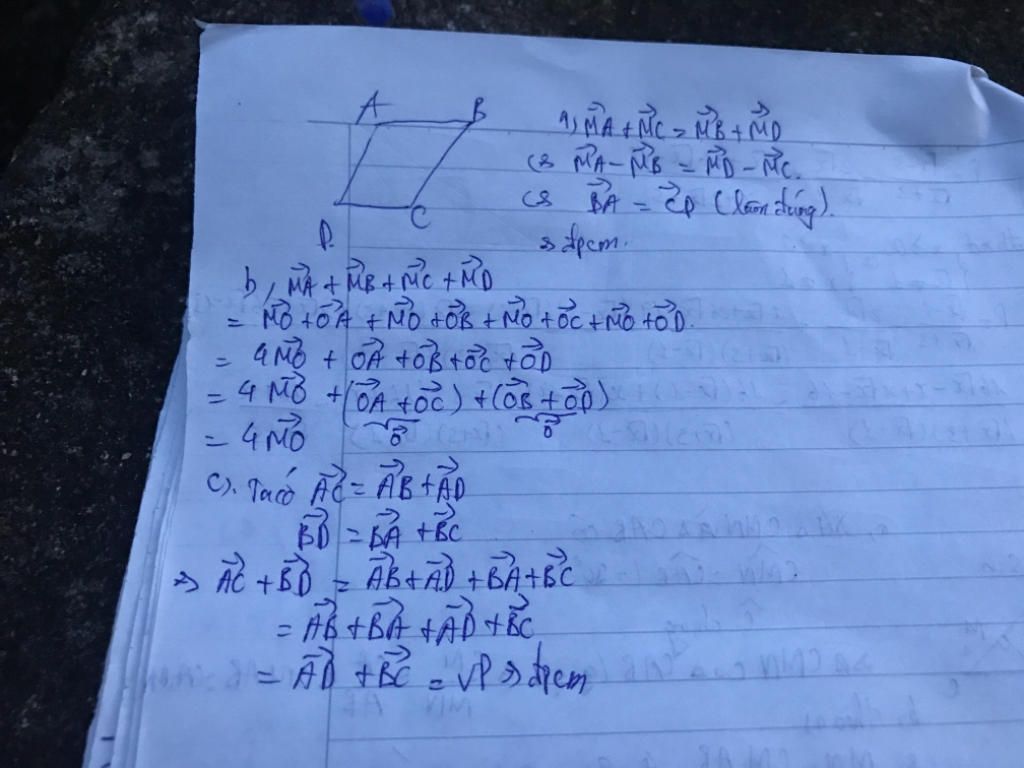 A B
D C
a) MA→ + MC→ = MB→ + MD→
(=) MA→ - MB→ = MD→ - MC→.
(=) BA→ = CD→ (luôn đúng).
=) đpcm.
b, MA→ + MB→ + MC→ + MD→
= MO→ + OA→ + MO→ + OB→ + MO→ + OC→ + MO→ + OD→.
= 4MO→ + OA→ + OB→ + OC→ + OD→
= 4MO→ + (OA→ + OC→) + (OB→ + OD→)
0→ 0→
= 4MO→
c). Ta có AC→ = AB→ + AD→
BD→ = BA→ + BC→
=) AC→ + BD→ = AB→ + AD→ + BA→ + BC→
= AB→ + BA→ + AD→ + BC→
= AD→ + BC→ = VP =) đpcm